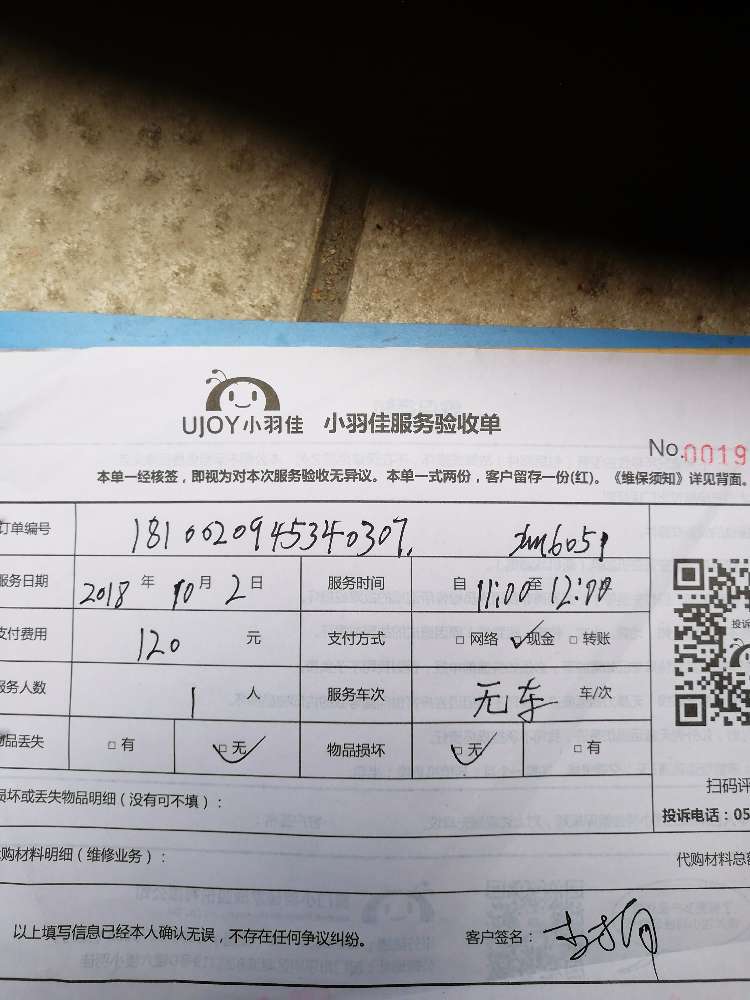 UJOY小羽佳 小羽佳服务验收单
No.0019
本单一经核签，即视为对本次服务验收无异议。本单一式两份，客户留存一份(红)。《维保须知》详见背面。
订单编号 1810020945340307. xm6051
服务日期 2018 年 10 月 2 日 服务时间 自 11:00 至 12:00
支付费用 120 元 支付方式 □网络 ✓现金 □转账
服务人数 1 人 服务车次 无车 车/次
物品丢失 □有 ☑无 物品损坏 ☑无 □有
扫码评
损坏或丢失物品明细（没有可不填）： 投诉电话：05
代购材料明细（维修业务）： 代购材料总额
以上填写信息已经本人确认无误，不存在任何争议纠纷。 客户签名：